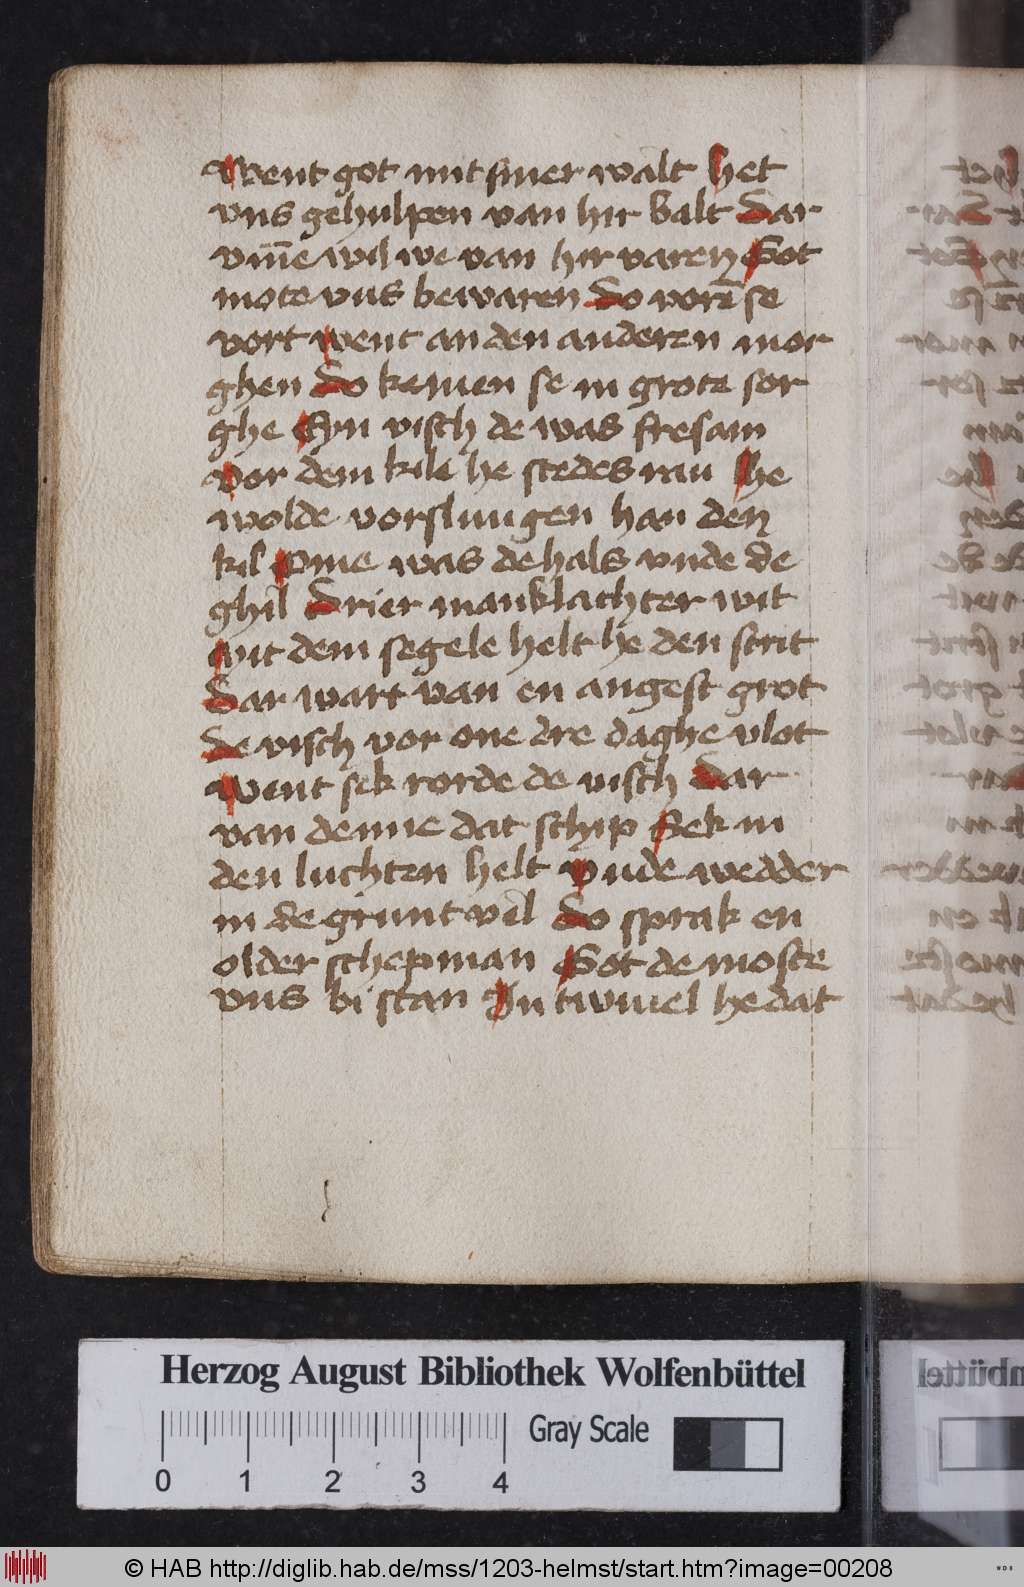 Went got mit siner walt het
vns gehulpen van hir balt Dar
vm̄e wil we van hir varen Got
mote vns bewaren Do vorē se
vort went an den anderen mor
ghen Do kemen se in grote sor
ghe Eyn visch de was fresam
Vor dem kile he stedes ran He
wolde vorslungen han den
kil Ome was de hals vnde de
ghil Drier manklachter wit
Mit dem segele helt he den strit
Dar wart van en angest grot
De visch vor one dre daghe vlot
Went sek rorde de visch Dar
van denne dat schip Sek in
den luchten helt Vnde wedder
in de grunt vil Do sprak en
older schepman Got de moste
vns bi stan In twiuel he dat
Herzog August Bibliothek Wolfenbüttel
Gray Scale
0 1 2 3 4
© HAB http://diglib.hab.de/mss/1203-helmst/start.htm?image=00208